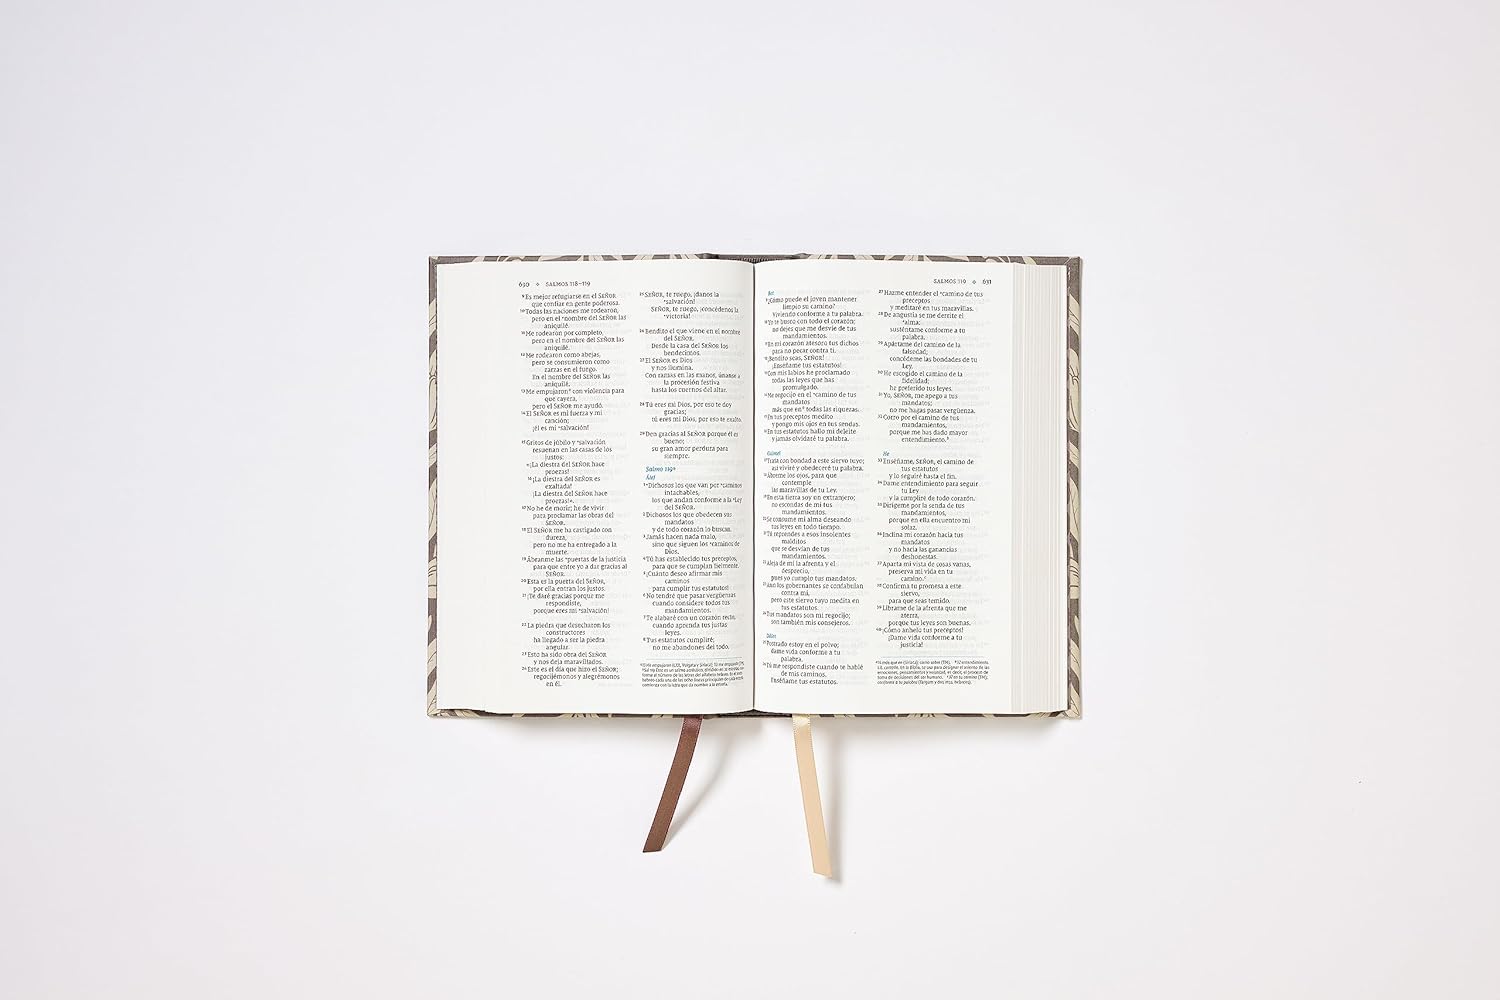 630 ⋄ SALMOS 118–119
9 Es mejor refugiarse en el SEÑOR
que confiar en gente poderosa.
10 Todas las naciones me rodearon,
pero en el *nombre del SEÑOR las
aniquilé.
11 Me rodearon por completo,
pero en el nombre del SEÑOR las
aniquilé.
12 Me rodearon como abejas,
pero se consumieron como
zarzas en el fuego.
En el nombre del SEÑOR las
aniquilé.
13 Me empujaron con violencia para
que cayera,
pero el SEÑOR me ayudó.
14 El SEÑOR es mi fuerza y mi
canción;
¡él es mi *salvación!
15 Gritos de júbilo y *salvación
resuenan en las casas de los
justos:
«¡La diestra del SEÑOR hace
proezas!
16 ¡La diestra del SEÑOR es
exaltada!
¡La diestra del SEÑOR hace
proezas!».
17 No he de morir; he de vivir
para proclamar las obras del
SEÑOR.
18 El SEÑOR me ha castigado con
dureza,
pero no me ha entregado a la
muerte.
19 Ábranme las *puertas de la justicia
para que entre yo a dar gracias al
SEÑOR.
20 Esta es la puerta del SEÑOR,
por ella entran los justos.
21 ¡Te daré gracias porque me
respondiste,
porque eres mi *salvación!
22 La piedra que desecharon los
constructores
ha llegado a ser la piedra
angular.
23 Esto ha sido obra del SEÑOR
y nos deja maravillados.
24 Este es el día que hizo el SEÑOR;
regocijémonos y alegrémonos
en él.
25 SEÑOR, te ruego, ¡danos la
*salvación!
SEÑOR, te ruego, ¡concédenos la
*victoria!
26 Bendito el que viene en el nombre
del SEÑOR.
Desde la casa del SEÑOR los
bendecimos.
27 El SEÑOR es Dios
y nos ilumina.
Con ramas en las manos, únanse a
la procesión festiva
hasta los cuernos del altar.
28 Tú eres mi Dios, por eso te doy
gracias;
tú eres mi Dios, por eso te exalto.
29 Den gracias al SEÑOR porque él es
bueno;
su gran amor perdura para
siempre.
Salmo 119
Álef
1 *Dichosos los que van por *caminos
intachables,
los que andan conforme a la *Ley
del SEÑOR.
2 Dichosos los que obedecen sus
mandatos
y de todo corazón lo buscan.
3 Jamás hacen nada malo,
sino que siguen los *caminos de
Dios.
4 Tú has establecido tus preceptos,
para que se cumplan fielmente.
5 ¡Cuánto deseo afirmar mis
caminos
para cumplir tus estatutos!
6 No tendré que pasar vergüenzas
cuando considere todos tus
mandamientos.
7 Te alabaré con un corazón recto,
cuando aprenda tus justas
leyes.
8 Tus estatutos cumpliré;
no me abandones del todo.
SALMOS 119 ⋄ 631
Bet
9 ¿Cómo puede el joven mantener
limpio su camino?
Viviendo conforme a tu palabra.
10 Yo te busco con todo el corazón;
no dejes que me desvíe de tus
mandamientos.
11 En mi corazón atesoro tus dichos
para no pecar contra ti.
12 ¡Bendito seas, SEÑOR!
¡Enséñame tus estatutos!
13 Con mis labios he proclamado
todas las leyes que has
promulgado.
14 Me regocijo en el *camino de tus
mandatos
más que en todas las riquezas.
15 En tus preceptos medito
y pongo mis ojos en tus sendas.
16 En tus estatutos hallo mi deleite
y jamás olvidaré tu palabra.
Guímel
17 Trata con bondad a este siervo tuyo;
así viviré y obedeceré tu palabra.
18 Ábreme los ojos, para que
contemple
las maravillas de tu Ley.
19 En esta tierra soy un extranjero;
no escondas de mí tus
mandamientos.
20 Se consume mi alma deseando
tus leyes en todo tiempo.
21 Tú reprendes a esos insolentes
malditos
que se desvían de tus
mandamientos.
22 Aleja de mí la afrenta y el
desprecio,
pues yo cumplo tus mandatos.
23 Aun los gobernantes se confabulan
contra mí,
pero este siervo tuyo medita en
tus estatutos.
24 Tus mandatos son mi regocijo;
son también mis consejeros.
Dálet
25 Postrado estoy en el polvo;
dame vida conforme a tu
palabra.
26 Tú me respondiste cuando te hablé
de mis caminos.
Enséñame tus estatutos.
27 Hazme entender el *camino de tus
preceptos
y meditaré en tus maravillas.
28 De angustia se me derrite el
*alma:
susténtame conforme a tu
palabra.
29 Apártame del camino de la
falsedad;
concédeme las bondades de tu
Ley.
30 He escogido el camino de la
fidelidad;
he preferido tus leyes.
31 Yo, SEÑOR, me apego a tus
mandatos;
no me hagas pasar vergüenza.
32 Corro por el camino de tus
mandamientos,
porque me has dado mayor
entendimiento.
He
33 Enséñame, SEÑOR, el camino de
tus estatutos
y lo seguiré hasta el fin.
34 Dame entendimiento para seguir
tu Ley
y la cumpliré de todo corazón.
35 Dirígeme por la senda de tus
mandamientos,
porque en ella encuentro mi
solaz.
36 Inclina mi corazón hacia tus
mandatos
y no hacia las ganancias
deshonestas.
37 Aparta mi vista de cosas vanas,
preserva mi vida en tu
camino.
38 Confirma tu promesa a este
siervo,
para que seas temido.
39 Líbrame de la afrenta que me
aterra,
porque tus leyes son buenas.
40 ¡Cómo anhelo tus preceptos!
¡Dame vida conforme a tu
justicia!